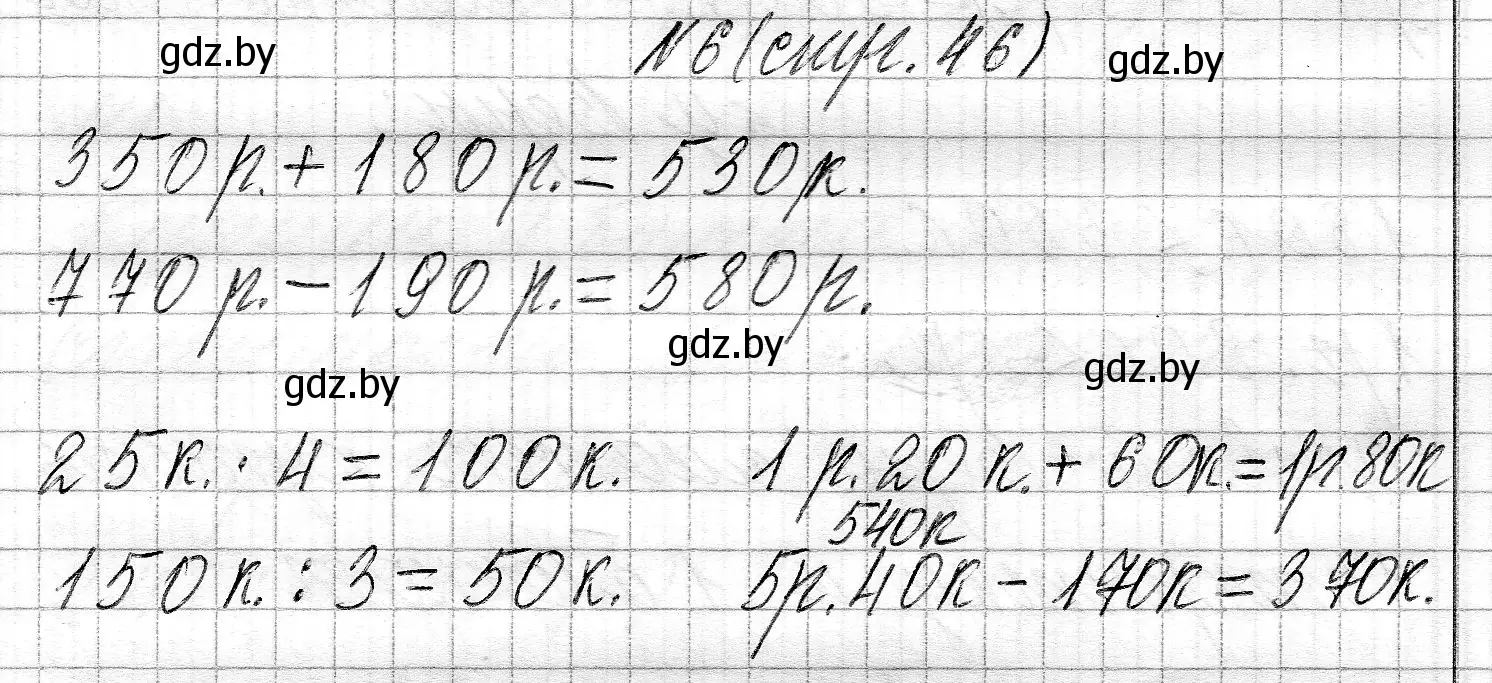 gdz.by
№6 (стр. 46)
gdz.by
350 р. + 180 р. = 530 к.
770 р. - 190 р. = 580 р.
gdz.by
gdz.by
gdz.by
25 к. · 4 = 100 к.
1 р. 20 к. + 60 к. = 1 р. 80 к
540 к
150 к. : 3 = 50 к.
5 р. 40 к - 170 к = 370 к.